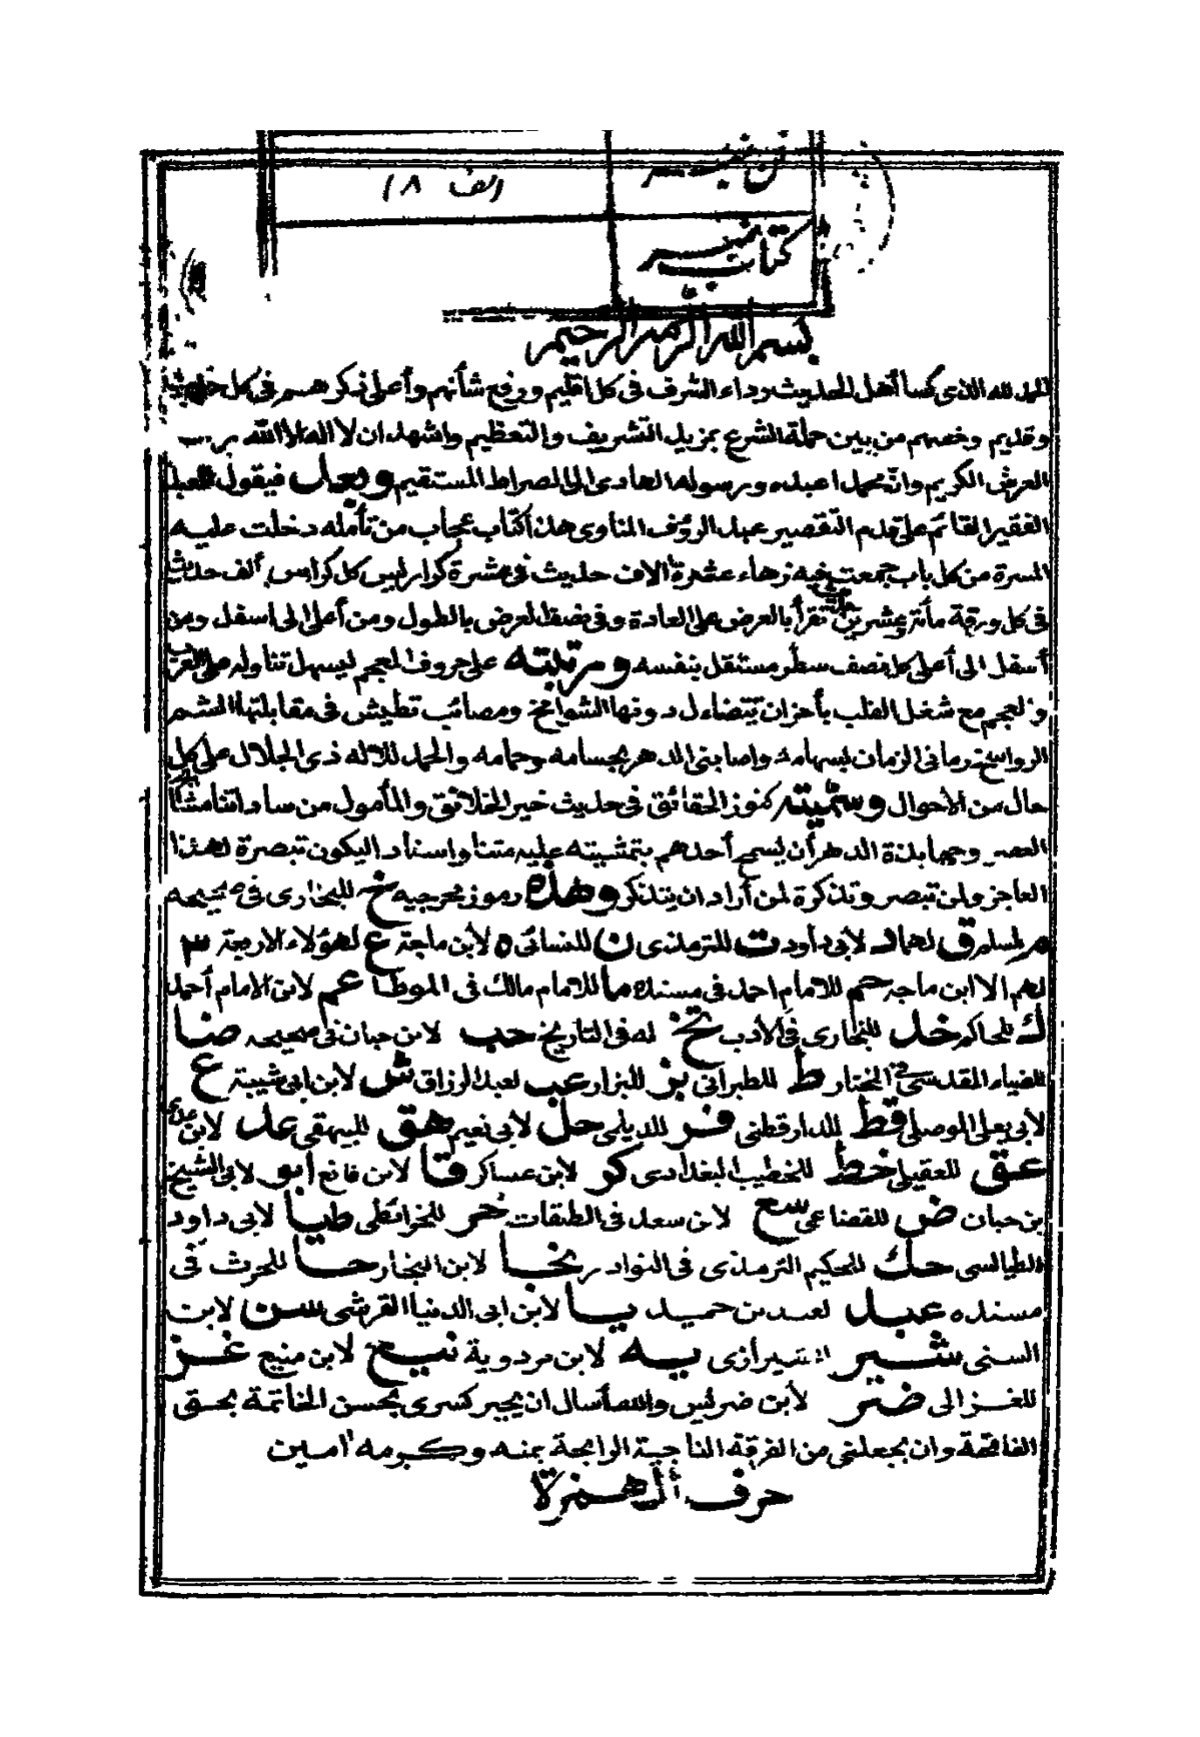 الف ١٨
كتاب نمبر
بسم الله الرحمن الرحيم
الحمد لله الذى كسا أهل الحديث رداء الشرف فى كل اقليم ورفع شأنهم وأعلى ذكرهم فى كل حديث
وقديم وخصهم من بين حملة الشرع بمزيد التشريف والتعظيم واشهد ان لا اله الا الله رب
العرش الكريم وان محمدا عبده ورسوله الهادى الى الصراط المستقيم وبعد فيقول العبد
الفقير القائم على قدم التقصير عبد الرؤف المناوى هذا كتاب عجاب من تأمله دخلت عليه
المسرة من كل باب جمعت فيه زهاء عشرة الاف حديث فى عشرة كراريس كل كراس ألف حديث
فى كل ورقة مأتى وعشرين تقرأ بالعرض على العادة وفى نصف العرض بالطول ومن أعلى الى اسفل ومن
أسفل الى أعلى كل نصف سطر مستقل بنفسه ورتبته على حروف المعجم ليسهل تناوله على العرب
والعجم مع شغل القلب بأحزان تتضاءل دونها الشوامخ ومصائب تطيش فى مقابلتها الشم
الرواسخ ورمانى الزمان بسهامه واصابنى الدهر بحسامه وحمامه والحمد لله ذى الجلال على كل
حال من الأحوال وسميته كنوز الحقائق فى حديث خير الخلائق والمأمول من ساداتنا مشايخ
العصر وجهابذة الدهر أن يسمح أحدهم بتمشيته عليه متنا واسنادا ليكون تبصرة لهذا
العاجز ولمن تبصر وتذكرة لمن أراد ان يتذكر وهذه رموز مخرجيه خ للبخارى فى صحيحه
م لمسلم ق لهما د لابى داود ت للترمذى ن للنسائى ه لابن ماجة ع لهؤلاء الاربعة ٣
لهم الا ابن ماجه حم للامام احمد فى مسنده ما للامام مالك فى الموطا عم لابن الامام أحمد
ك للحاكم خد للبخارى فى الأدب تخ له فى التاريخ حب لابن حبان فى صحيحه ضا
للضياء المقدسى فى المختار ط للطبرانى بز للبزار عب لعبد الرزاق ش لابن ابى شيبة ع
لابى يعلى الموصلى قط للدارقطنى فر للديلمى حل لأبى نعيم هق للبيهقى عد لابن عدى
عق للعقيلى خط للخطيب البغدادى كو لابن عساكر قا لابن قانع أبو لابى الشيخ
بن حبان ض للقضاعى سع لابن سعد فى الطبقات خر للخرائطى طيا لابى داود
الطيالسى حك للحكيم الترمذى فى النوادر نجا لابن النجار حا للحرث فى
مسنده عبد لعبد بن حميد يا لابن ابى الدنيا القرشى سن لابن
السنى شير الشيرازى يه لابن مردوية نيع لابن منيع غز
للغزالى ضر لأبن ضريس والله أسال ان يجبر كسرى بحسن الخاتمة بحق
الفاتحة وان يجعلنى من الفرقة الناجية الرابحة بمنه وكرمه امين
حرف الهمزة